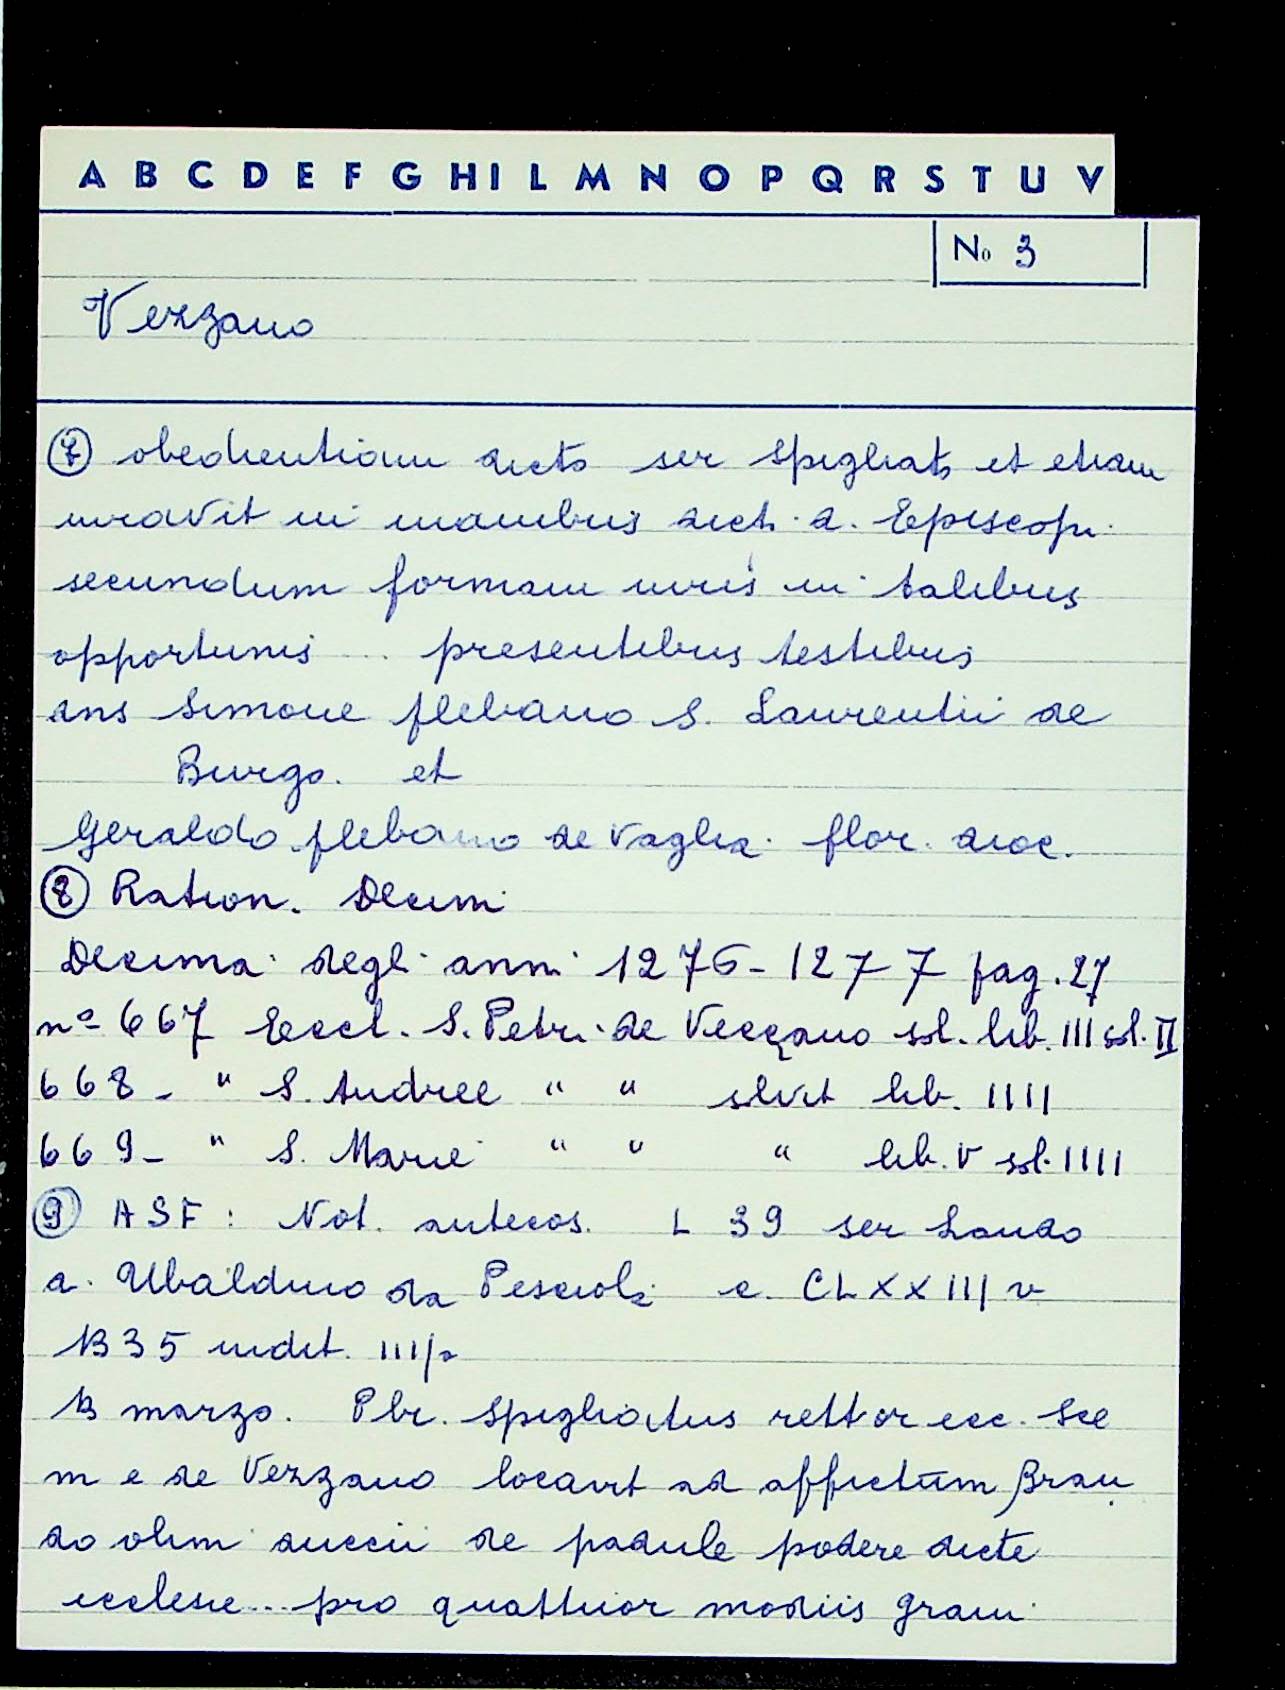 A B C D E F G H I L M N O P Q R S T U V
No 3
Vezzano
⑦ obedientiam dicto ser Spigliato et etiam
iuravit in manibus dicti d. Episcopi
secundum formam iuris in talibus
opportunis ... presentibus testibus
dns Simone plebano S. Laurentii de
Burgo. et
Geraldo plebano de Vaglia. flor. dioc.
⑧ Ration. Decim
Decima degli anni 1276-1277 pag. 27
nº 667 Eccl. S. Petri de Veczano sol. lib. III sol. II
668 - " S. Andree " " solvit lib. IIII
669 - " S. Marie " " " lib. V sol. IIII
⑨ ASF: Not. antecos. L 39 ser Lando
d. Ubaldino da Pesciola c. CLXXIII v
1335 indit. III/a
13 marzo. Pbr. Spigliatus rettor ecc. Sce
m e de Vezzano locavit ad affictum Bran
do olim duccii de padule podere dicte
ecclesie... pro quattuor modiis grani